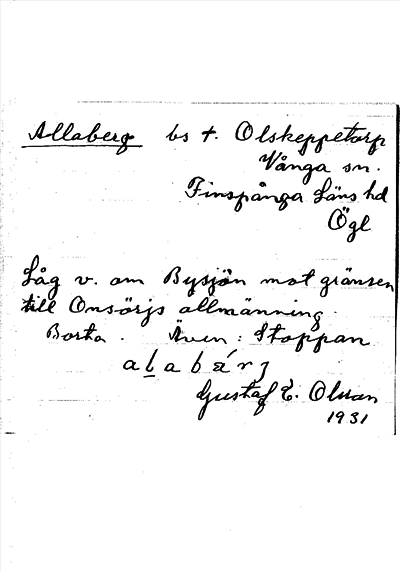 Allaberg bs t. Olskeppetorp
Vånga sn.
Finspånga läns hd
Ögl
Låg v. om Bysjön mot gränsen
till Onsörjs allmänning.
Borta. Även: Stoppan
Gustaf E. Olsson
1931